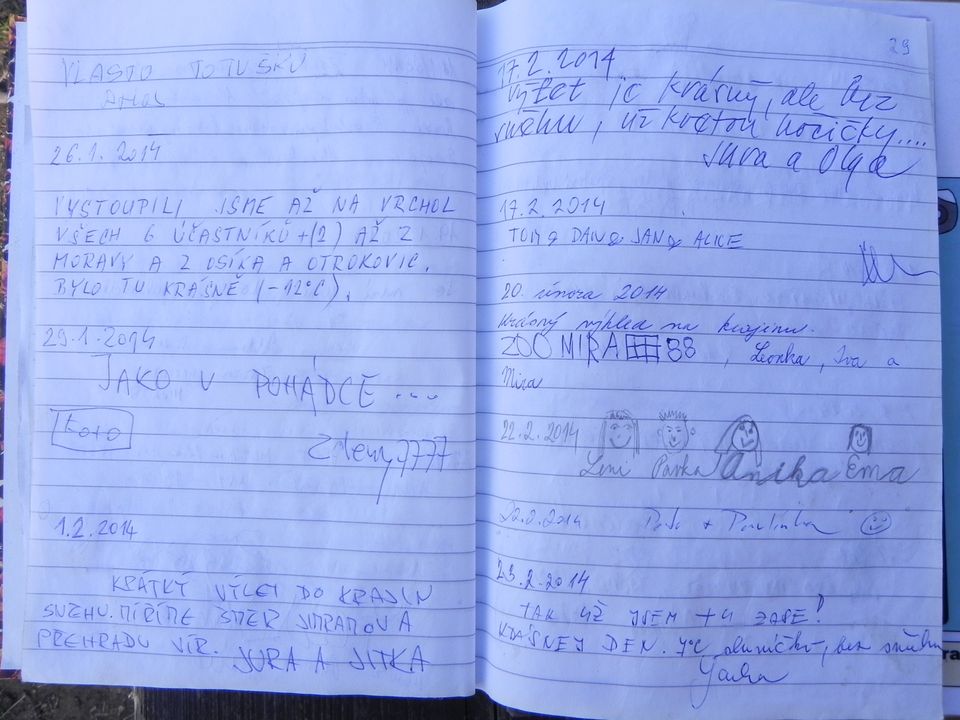 VLASTO TOTUŠKŮ
26.1.2014
VYSTOUPILI JSME AŽ NA VRCHOL
VŠECH 6 ÚČASTNÍKŮ +(2) AŽ Z
MORAVY A Z OSÍKA A OTROKOVIC.
BYLO TU KRÁSNĚ (-12°C).
29.1.2014
JAKO V POHÁDCE ...
FOTO
1.2.2014
KRÁTKÝ VÝLET DO KRAJIN
SNĚHU. MÍŘÍME SMĚR JIMRAMOV A
PŘEHRADU VÍR.
JURA A JITKA
29
17.2.2014
Výlet je krásný, ale bez
sněhu, už kvetou kočičky....
Jura a Olga
17.2.2014
TOM & DAN & JAN & ALICE
20. února 2014
Krásný výhled na krajinu.
ZOO MIRA 88, Leonka, Iva a
Mira
22.2.2014
Leni Pavka Anička Ema
22.2.2014 + Pavlínka
23.2.2014
TAK UŽ JSEM TU ZASE!
KRÁSNEJ DEN. 7°C, sluníčko, bez sněhu